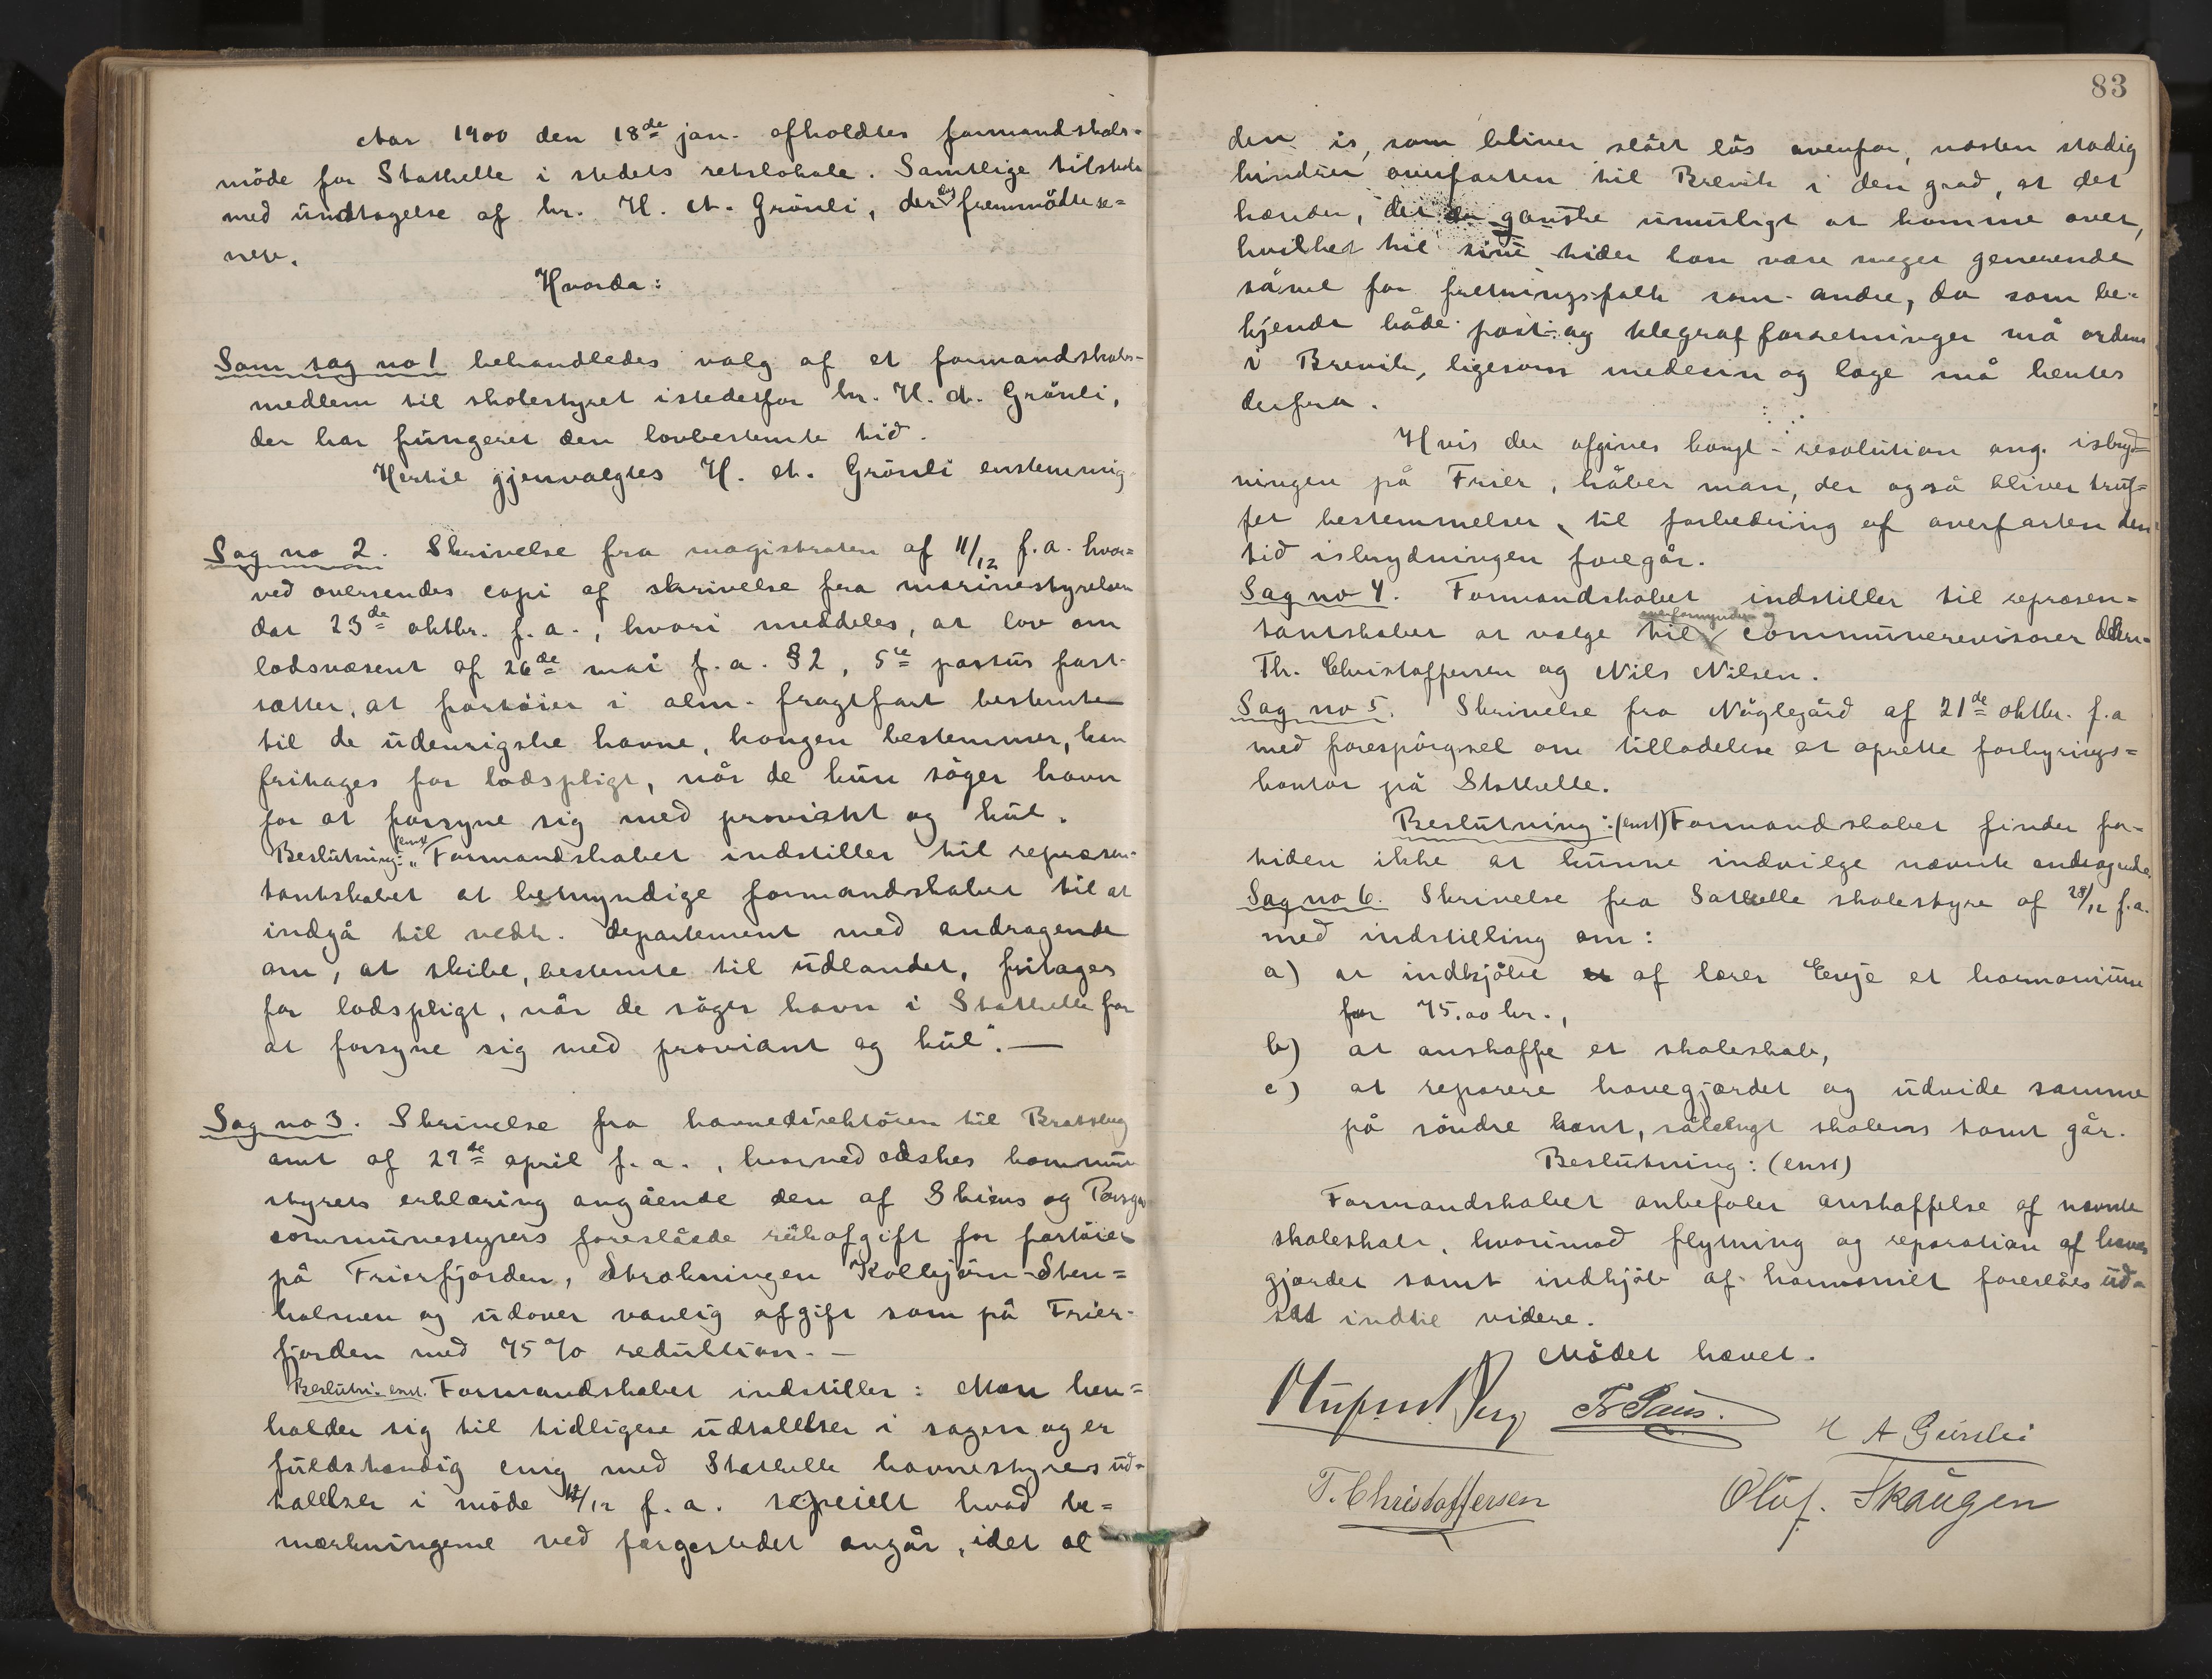 Aar 1900 den 18de jan. afholdtes formandskabs-
möde for Stathelle i stedets retslokale. Samtlige tilstede
med undtagelse af hr. H. A. Grönli, der dog fremmödte se-
nere.
Hvorda:
Som sag no 1 behandledes valg af et formandskabs-
medlem til skolestyret istedetfor hr. H. A. Grönli,
der har fungeret den lovbestemte tid.
Hertil gjenvalgtes H. A. Grönli enstemmig.
Sag no 2. Skrivelse fra magistraten af 11/12 f.a. hvor=
ved oversendes copi af skrivelse fra marinestyrelsen
dat 23de oktbr. f.a., hvori meddeles, at lov om
lodsvæsent af 26de mai f.a. §2, 5te passus fast-
sætter, at fartöier i alm. fragtfart bestemte
til de udenrigske havne, kongen bestemmer, kan
fritages for lodspligt, når de kun söger havn
for at forsyne sig med proviant og kul.
Beslutning: enst. „Formandskabet indstiller til repræsen-
tantskabet at bemyndige formandskabet til at
indgå til vedk. departement med andragende
om, at skibe, bestemte til udlandet, fritages
for lodspligt, når de söger havn i Stathelle for
at forsyne sig med proviant og kul". —
Sag no 3. Skrivelse fra havnedirektören til Bratsberg
amt af 27de april f.a., hvorved æskes kommune
styrets erklæring angående den af Skiens og Porsgr.
communestyrers foreslåede rükafgift for fartöier
på Frierfjorden, Strækningen Kolbjörn-Sten=
holmen og udover vanlig afgift som på Frier-
fjorden med 75 % reduktion. —
Beslutn: enst. Formandskabet indstiller: Man hen=
holder sig til tidligere udtallelser i sagen og er
fuldstændig enig med Stathelle havnestyres ud-
tallelser i möde 12/12 f.a. specielt hvad be=
mærkningerne ved færgestedet angår, idet al
83
den is, som bliver slået lös ovenfor, næsten stadig
hindrer overfarten til Brevik i den grad, at det
hænder, det er ganske umuligt at komme over,
hvilket til sine tider kan være meget generende
såvel for forretningsfolk som andre, da som be-
kjendt både post- og telegrafforretninger må ordnes
i Brevik, ligesom medesin og læge må hentes
derfra.
Hvis der afgives kongl. resolution ang. isbryd=
ningen på Frier, håber man, der også bliver truf=
fet bestemmelser, til forbedring af overfarten den
tid isbrydningen foregår.
Sag no 4. Formandskabet indstiller til repræsen=
tantskabet at vælge til overformynder og communerevisorer dhrr.
Th. Christoffersen og Nils Nilsen.
Sag no 5. Skrivelse fra Nöglegård af 21de oktbr. f.a
med forespörgsel om tilladelse at oprette forhyrings=
kontor på Stathelle.
Beslutning: (enst) Formandskabet finder for-
tiden ikke at kunne indvilge nævnte andragende.
Sag no 6. Skrivelse fra Sathelle skolestyre af 28/12 f.a.
med indstilling om:
a) at indkjöbe et af lærer Eeje et harmonium
for 75.00 kr.,
b) at anskaffe et skoleskab,
c) at reparere havegjærdet og udvide samme
på söndre kant, sålangt skolens tomt går.
Beslutning: (enst)
Formandskabet anbefaler anskaffelse af nævnte
skoleskab, hvorimod flytning og reparation af have
gjærdet samt indkjöb af harmoniet foreslåes ud=
sat indtil videre.
Mödet hævet.
Fr Paus.
H A Grönli
T. Christoffersen
Oluf. Skaugen